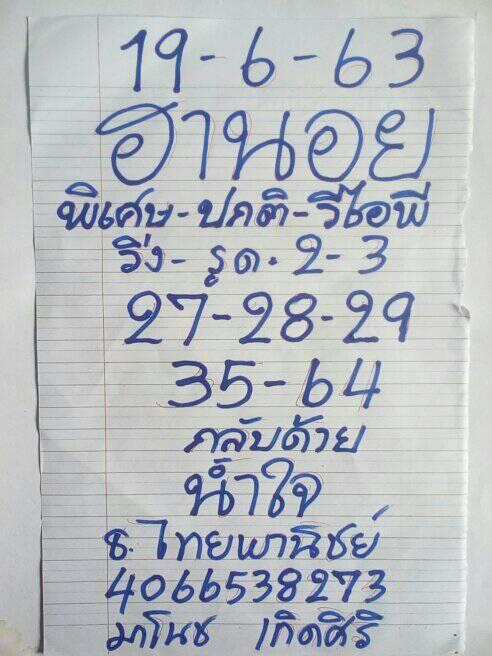 19-6-63
ฮานอย
พิเศษ-ปกติ-วีไอพี
วิ่ง-รูด.2-3
27-28-29
35-64
กลับด้วย
น้ำใจ
ธ.ไทยพานิชย์
4066538273
มาโนช เกิดศิริ